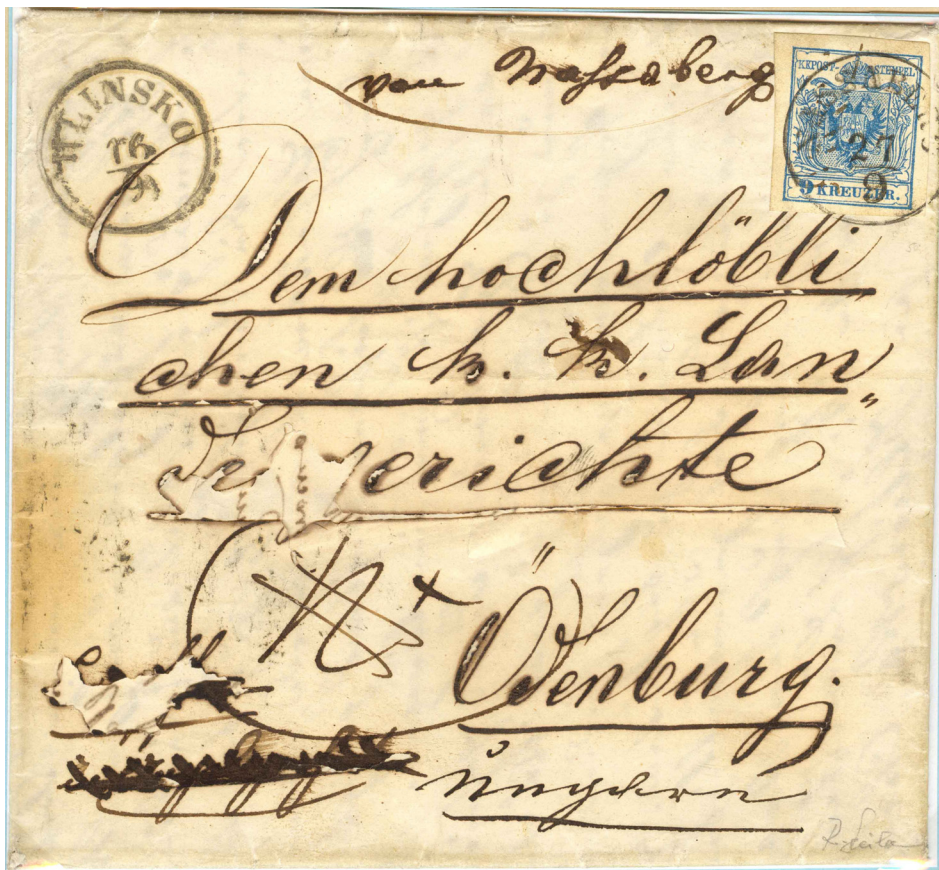 von Nassaberg
HLINSKO
16
9
KK POST-STEMPEL
27
9
9 KREUZER.
Dem hochlöbli
chen k. k. Lan
desgerichte
Ödenburg.
Ungarn